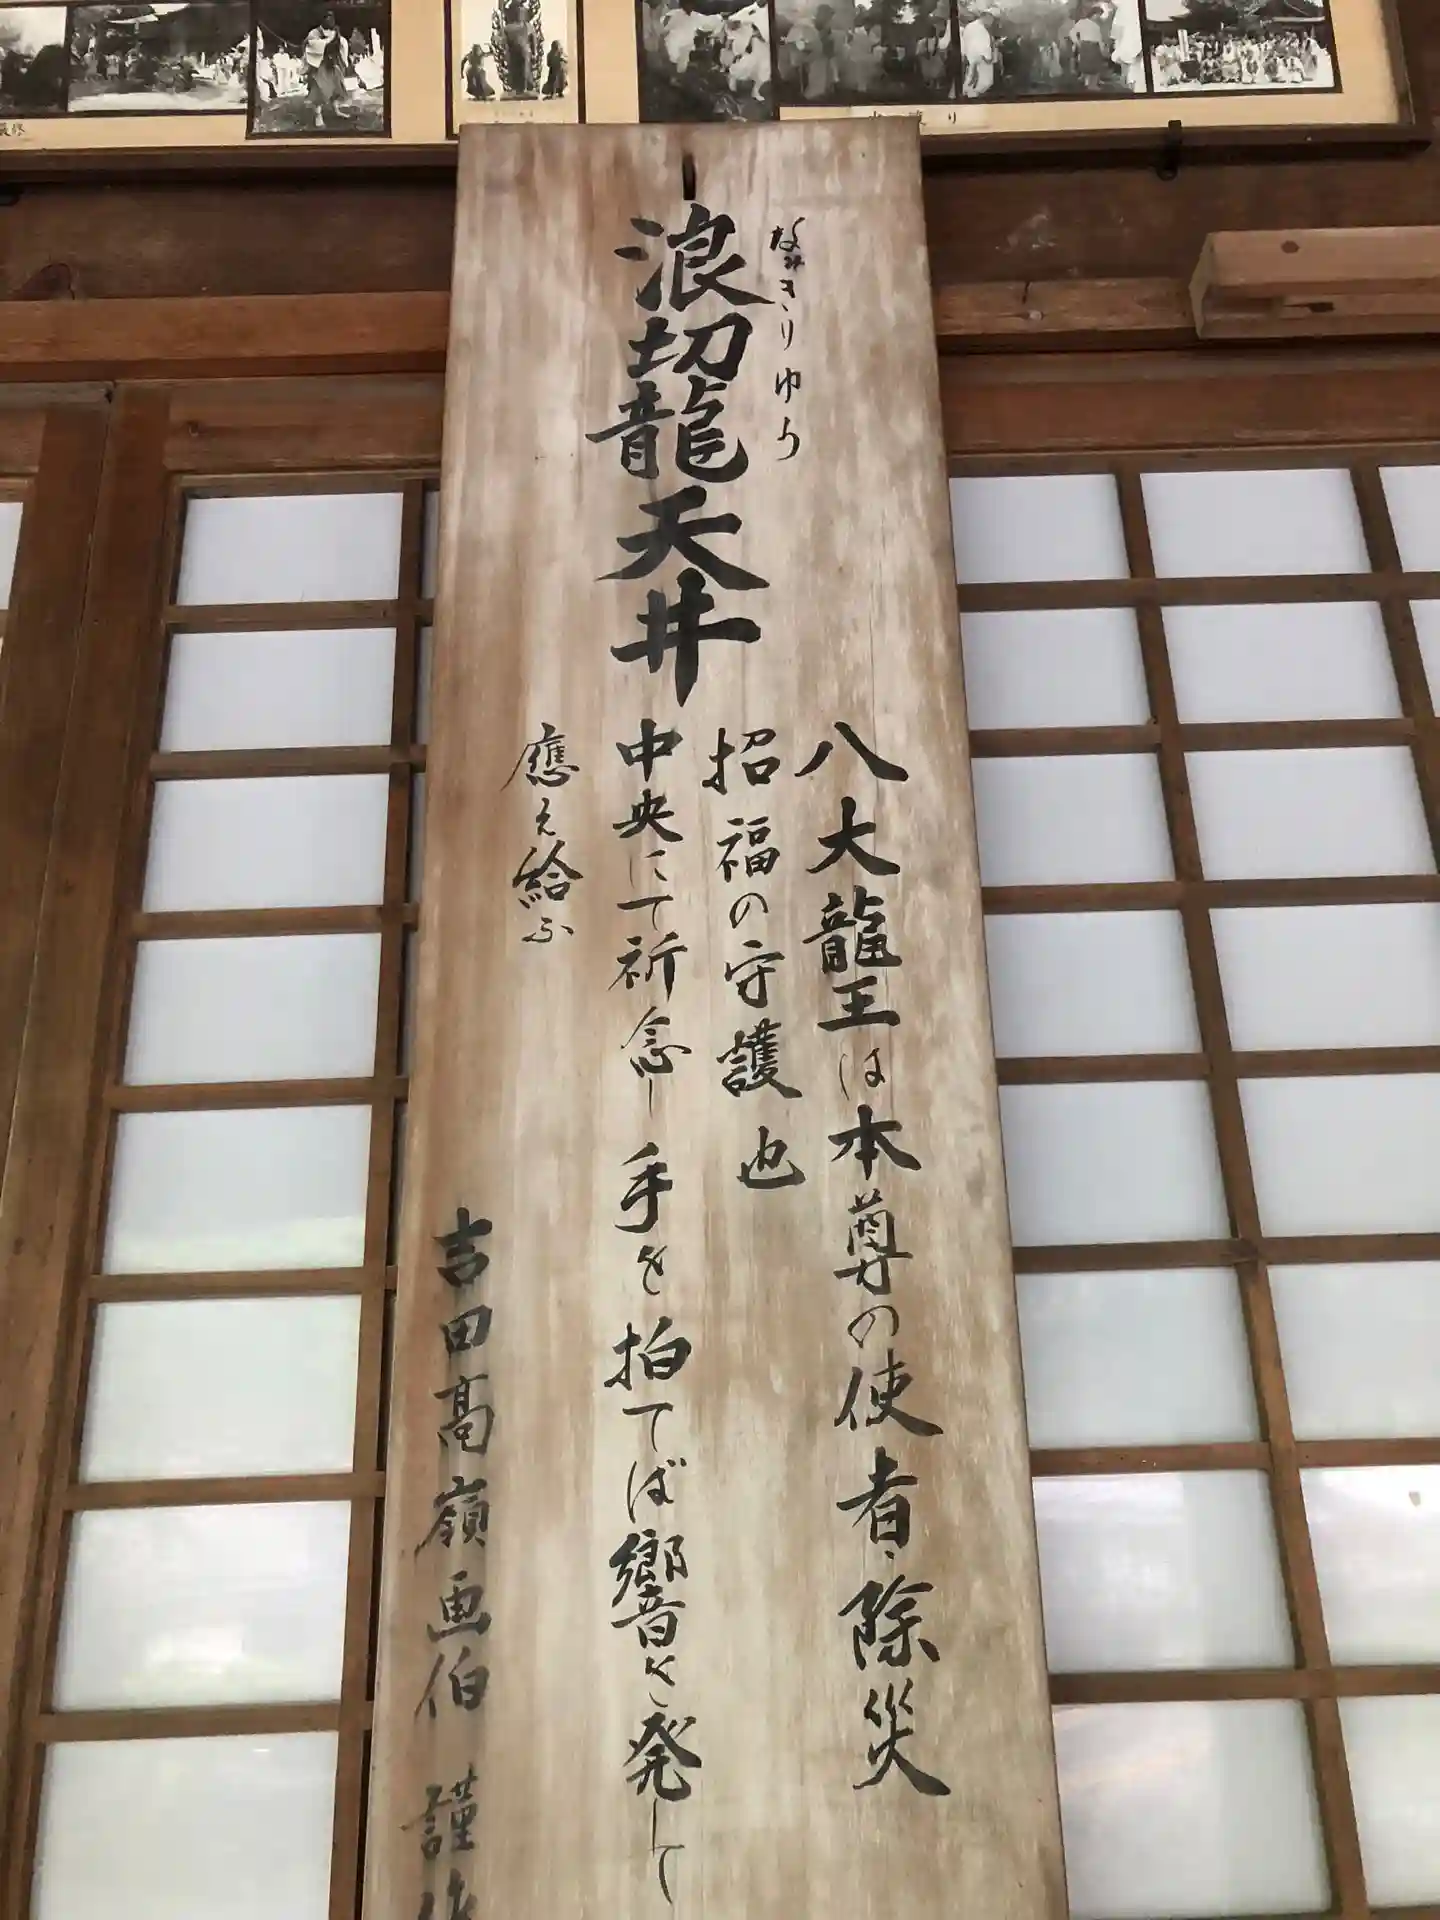 浪切龍天井
なみきりゆう
八大龍王は本尊の使者、除災
招福の守護也
中央にて祈念し手を拍てば響きを発して
應え給ふ
吉田高嶺画伯 謹作